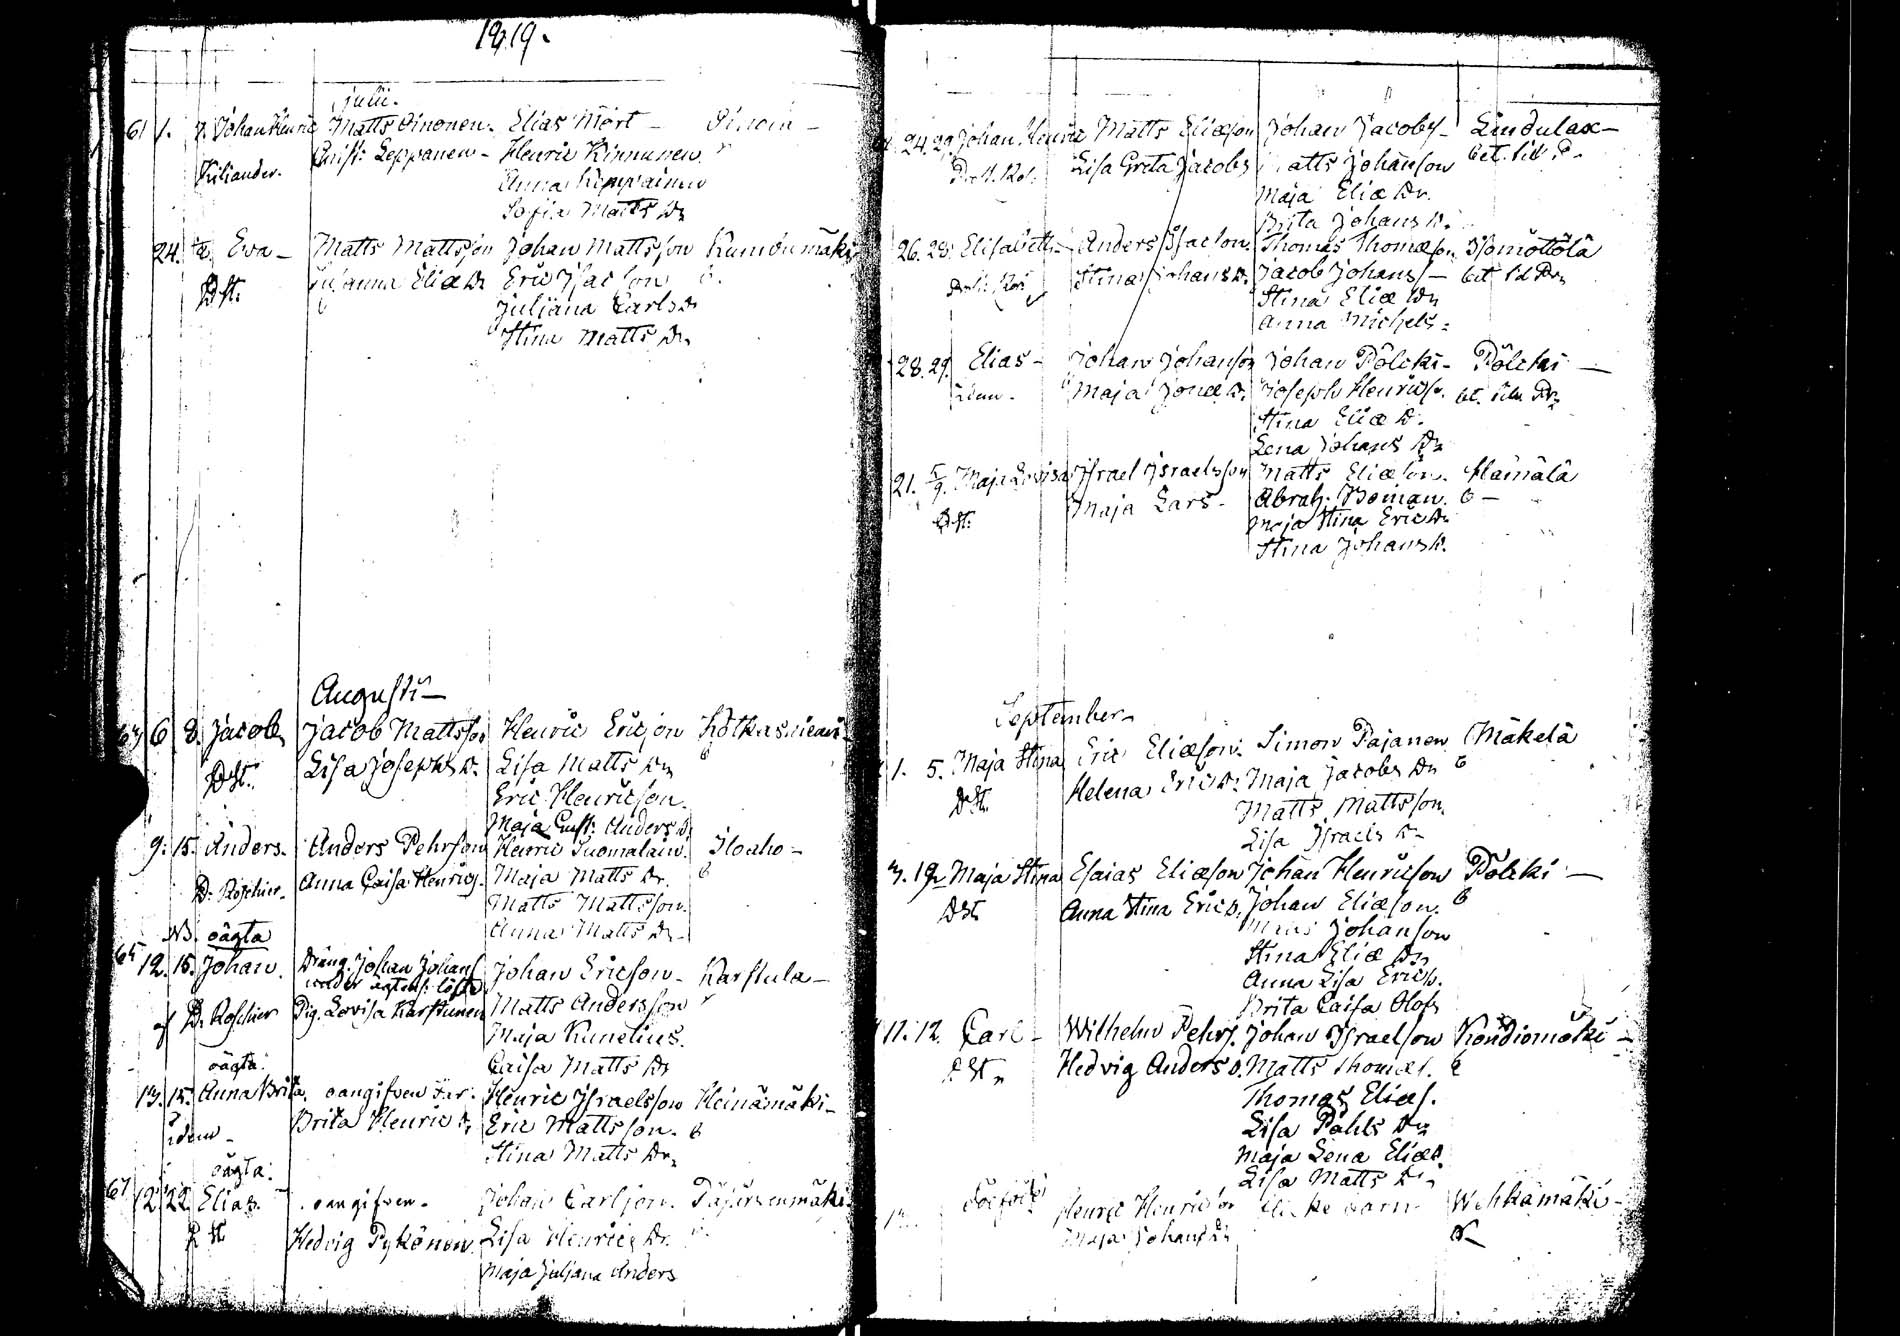 1819.
Julii.
61 1. 7. Johan Henric Matts Oinonen. Elias Mört
Kiliander. Christ: Leppänen Henric Kinnunen
Anna Kimpainen
Sofia Matts Dr
24. Eva Matts Mattsson Johan Mattsson Kumönmäki
D. St. Susanna Eliæ D. Eric Isacson
Juliana Carls Dr
Stina Matts Dr
Augusti
6 8. Jacob Jacob Mattsson Henric Ericson Kotkasniemi
D. St. Lisa Josephs D. Lisa Matts Dr
Eric Henricson.
Maja Christ: Anders D.
9. 15. Anders. Anders Pehrson Henric Suomalain. Iloaho
D. Roschier. Anna Caisa Henrics. Maja Matts Dr. b
Matts Mattsson.
Anna Matts Dr
NB. oägta
65 12. 15. Johan. Dräng. Johan Johans Johan Ericson Karstula
under ägtensk: löfte
af D. Roschier Pig. Lovisa Karstunen Matts Andersson
Maja Kunelius.
oägta. Caisa Matts Dr
13. 15. Anna Brita. oangifven Far: Henric Israelsson Heinämäki
idem Brita Henrics D. Eric Mattsson. b
Stina Matts Dr
oägta.
67 12 22. Elias. oangifven. Johan Carlson.
D St Hedvig Pykönen Lisa Henrics Dr.
Maja Juliana Anders
24. 29. Johan Henric Matts Eliæson Johan Jacobs Lindulax
Lisa Greta Jacobs Matts Johanson
Maja Eliæ Dr.
Brita Johans D.
26. 28. Elisabeth Anders Isacson. Thomas Thomæson Isomöttölä
Stina Johans D. Jacob Johans
Stina Eliæ Dr
Anna Michels
28. 29. Elias Johan Johanson Johan Pölcki Pölcki
idem. Maja Jonæ D. Joseph Henrics.
Stina Eliæ D.
Lena Johans Dr
21. 5/9. Maja Lovisa Israel Israelsson Matts Eliæson. Hämälä
D. St. Maja Lars Abrah: Boman. b
Maja Stina Erics Dr
Stina Johans D.
September
1. 5. Maja Stina Eric Eliæson. Simon Pajanen Mäkelä
D. St. Helena Erics D. Maja Jacobs Dr b
Matts Mattsson.
Lisa Israels D
3. 12 Maja Stina Esaias Eliæson Johan Henricson Pölcki
D St Anna Stina Erics D. Johan Eliæson. b
Johanson
Stina Eliæ Dr
Anna Lisa Erics D.
Brita Caisa Olofs
11. 12. Carl Wilhelm Pehrs. Johan Israelson Kondiomäki
D St Hedvig Anders D. Matts Thomæs.
Thomas Eliæs.
Lisa Påhls Dr
Maja Lena Eliæ D.
Lisa Matts Dr
Henric Henricson Wehkamäki
Maja Johans Dr